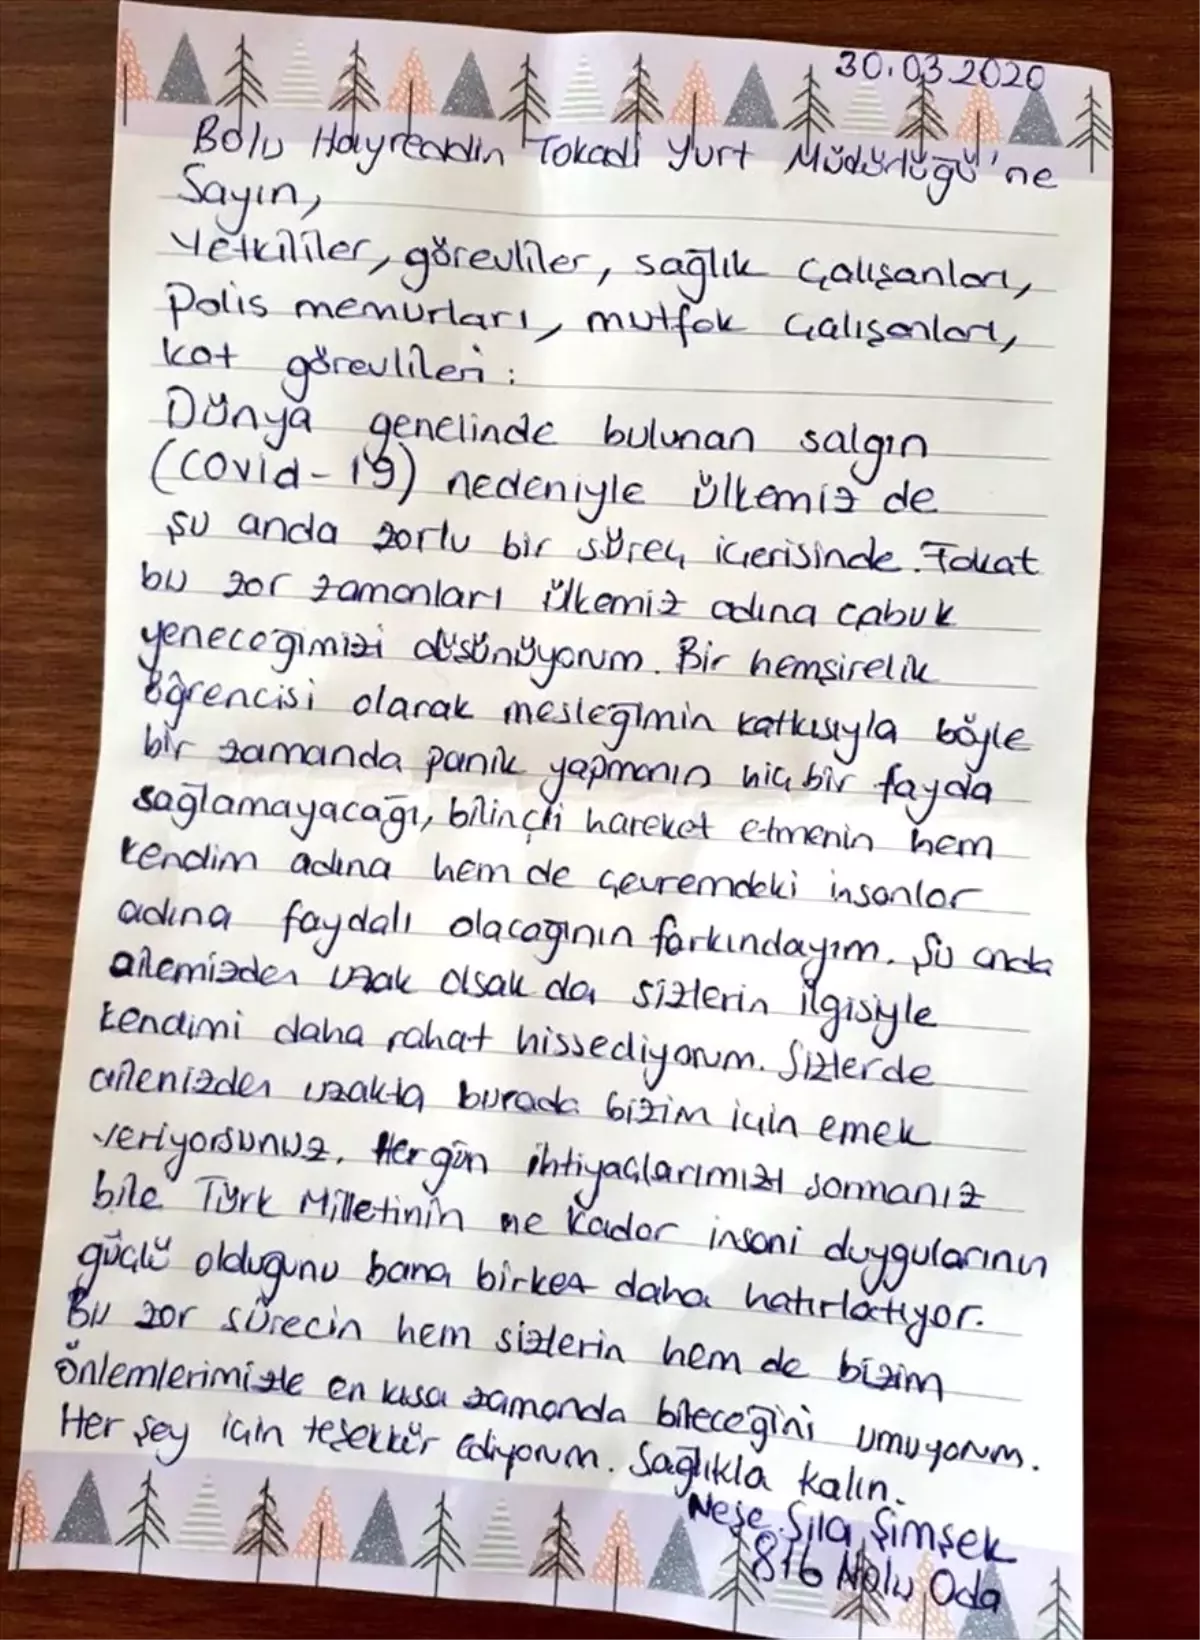 30.03.2020
Bolu Hayreddin Tokadi Yurt Müdürlüğü'ne
Sayın,
Yetkililer, görevliler, sağlık çalışanları,
Polis memurları, mutfak çalışanları,
kat görevlileri :
Dünya genelinde bulunan salgın
(covid-19) nedeniyle ülkemiz de
şu anda zorlu bir süreç içerisinde. Fakat
bu zor zamanları ülkemiz adına çabuk
yeneceğimizi düşünüyorum. Bir hemşirelik
öğrencisi olarak mesleğimin katkısıyla böyle
bir zamanda panik yapmanın hiç bir fayda
sağlamayacağı, bilinçli hareket etmenin hem
kendim adına hem de çevremdeki insanlar
adına faydalı olacağının farkındayım. Şu anda
ailemizden uzak olsak da sizlerin ilgisiyle
kendimi daha rahat hissediyorum. Sizlerde
ailenizden uzakta burada bizim için emek
veriyorsunuz. Her gün ihtiyaçlarımızı sormanız
bile Türk Milletinin ne kadar insani duygularının
güçlü olduğunu bana birkez daha hatırlatıyor.
Bu zor sürecin hem sizlerin hem de bizim
önlemlerimizle en kısa zamanda biteceğini umuyorum.
Her şey için teşekkür ediyorum. Sağlıkla kalın.
Neşe Sıla Şimşek
816 Nolu Oda